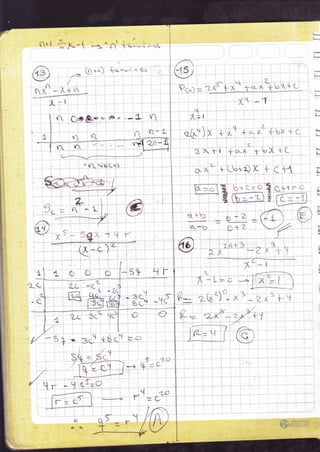 n+1 ÷ x-1 → "n" términos
13 (n+1) términos
nxⁿ - x + n
x - 1
n 0 - - - - 0 -1 n
1 n n n n-1
n n n 2n-1
"n" veces
Sc = n² - 1
14 x⁵ - 5qx + 4r
(x-c)²
1 1 0 0 0 -5q 4r
2c 2c -c²
-c² 4c² -2c³
1 2c 3c² 4c³ 0 0
-5q - 3c⁴ + 8c⁴ = 0
5q = 5c⁴
q = c⁴ → q⁵ = c²⁰
4r - 4c⁵ = 0
r = c⁵ → r⁴ = c²⁰
∴ q⁵ = r⁴ A
15
P(x) = 2x⁵ + x⁴ + ax² + bx + c
x⁴ - 1
x⁴ = 1
2(x⁴)x + x⁴ + ax² + bx + c
2x + 1 + ax² + bx + c
ax² + (b+2)x + c + 1
a = 0 b+2 = 0 c+1 = 0
b = -2 c = -1
a+b = 0-2 = -1 E
a-b 0+2
16 2x²ⁿ⁺³ - 2x³ + 4
x² - 1
x² - 1 = 0 → x² = 1
R = 2(x²)ⁿ · x³ - 2x³ + 4
R = 2x³ - 2x³ + 4
R = 4 C